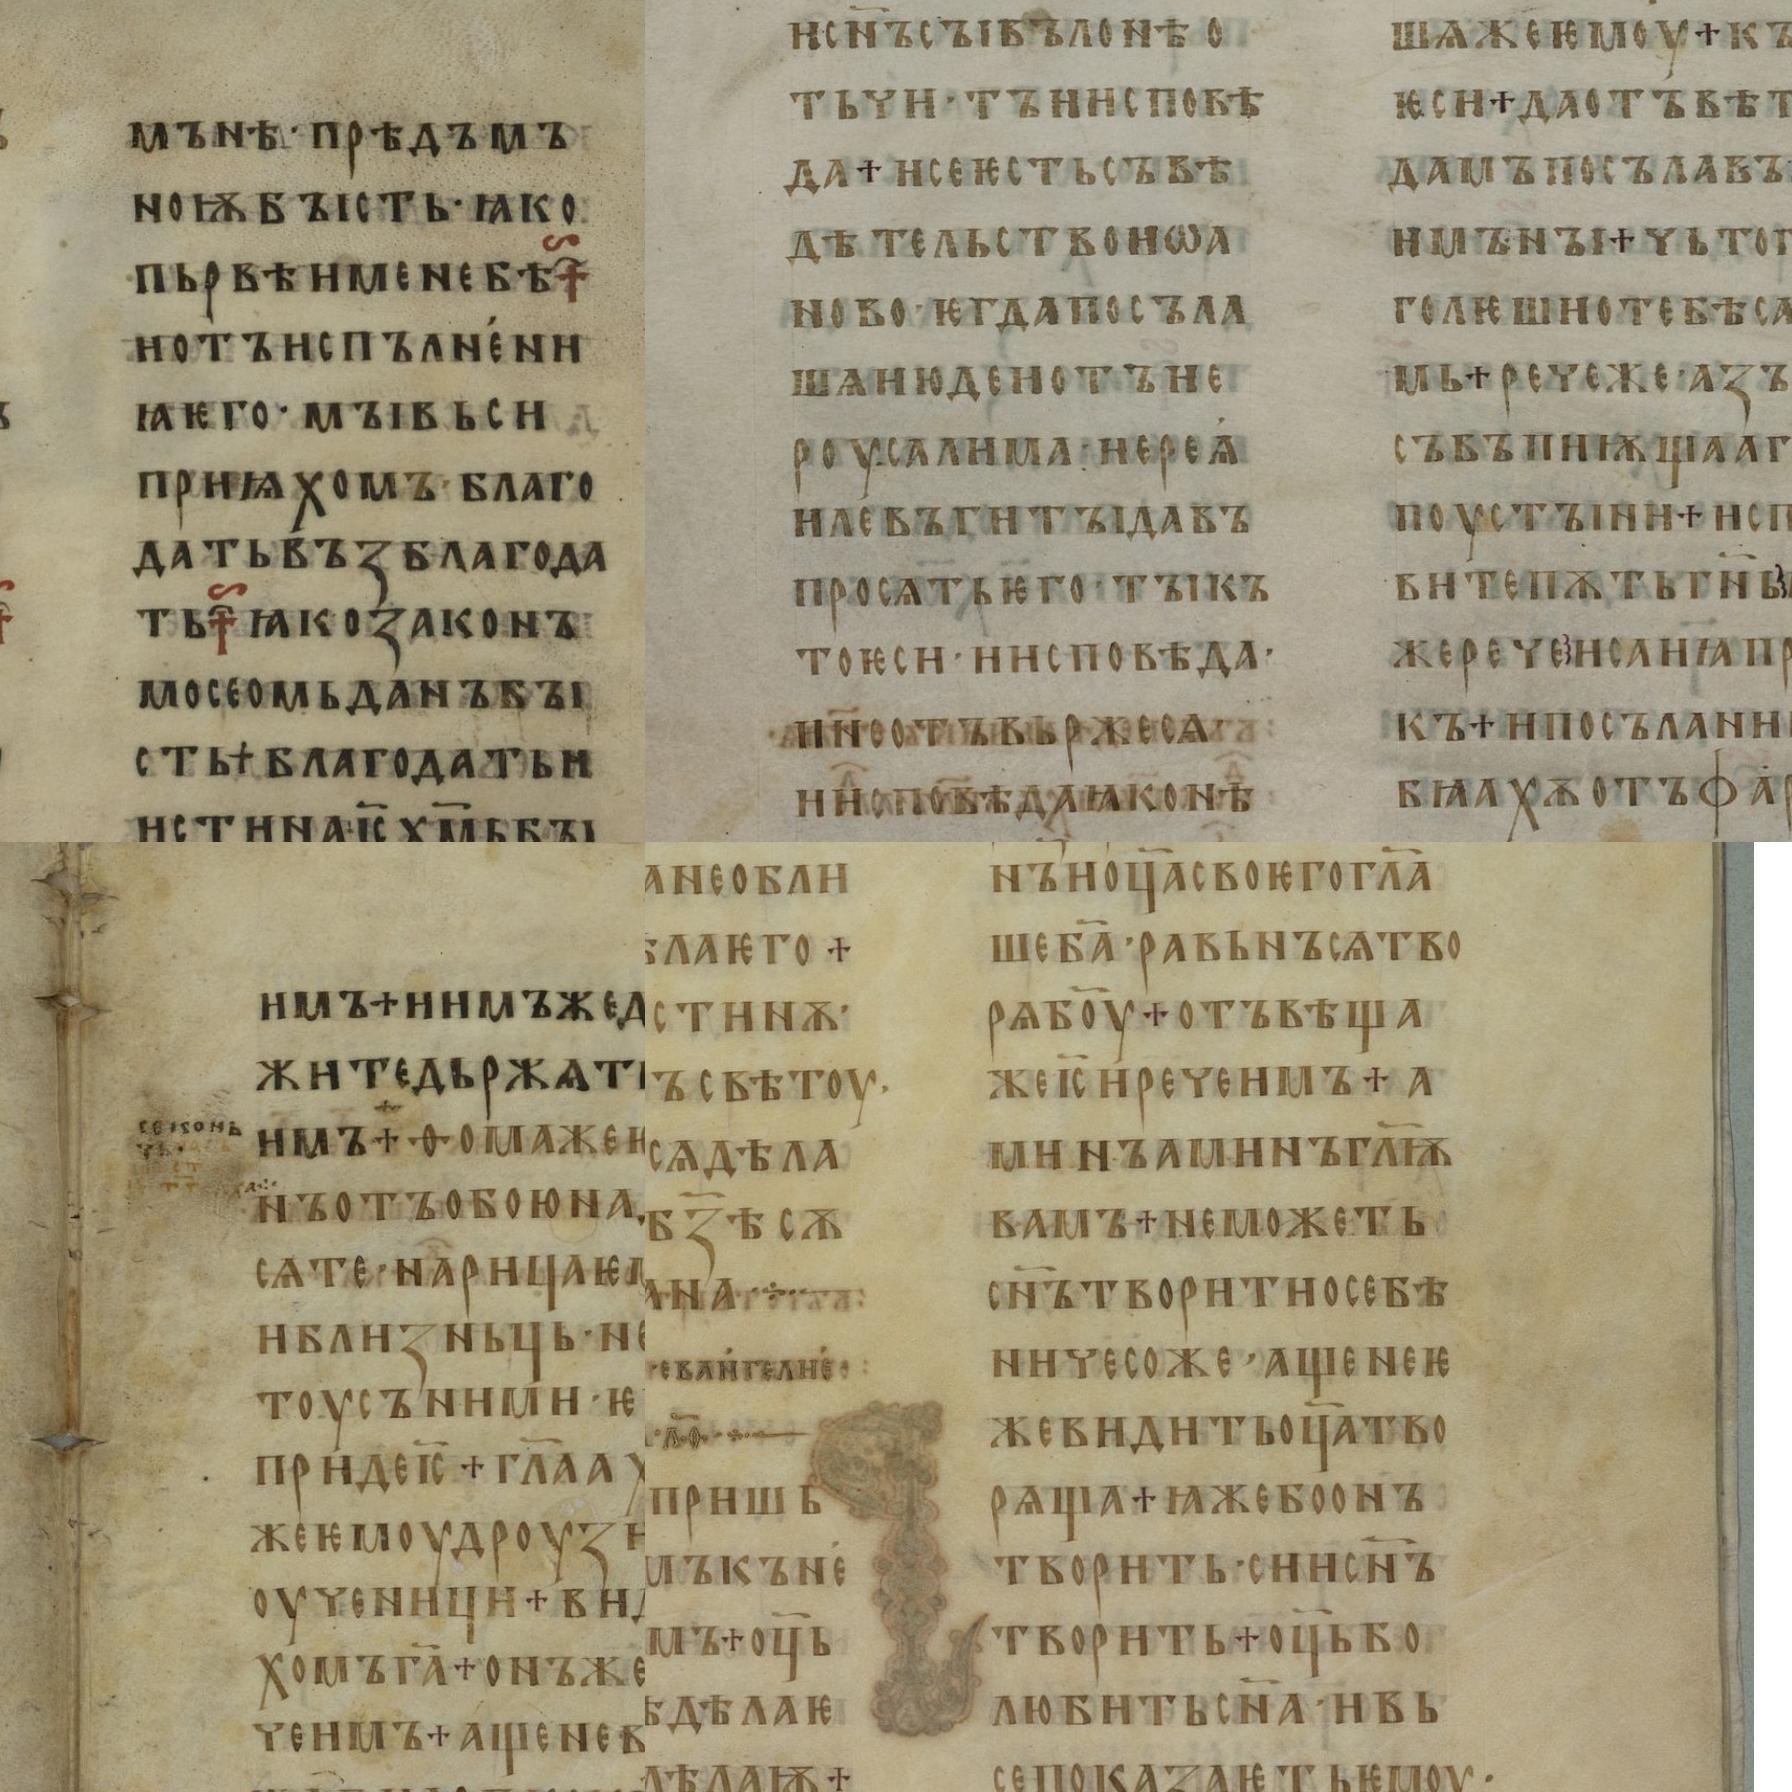 мънѣ· прѣдъмъ
ноѭбꙑсть·ꙗко
пьрвѣименебѣ
иотъиспълнени
ꙗѥго· мꙑвьси
приѩхомъ· благо
датьвъзблагода
ть ꙗкозаконъ
мосеомьданъбꙑ
сть+благодатьи
истинаіс҃хм҃ьбꙑ
исн҃ъсꙑвълонѣо
тьчи·тъиисповѣ
да+исеѥстьсъвѣ
дѣтельствоиѡа
ново·ѥгдапосъла
шѧиюдеиотъие
роусалима·иереꙗ
илевъгитꙑдавъ
просѧтьѥго·тꙑкъ
тоѥси·ииисповѣда·
ине҃отъвьржесѧ
ииисповѣдаꙗконѣ
шѧжеѥмоу+къ
ѥси+даотъвѣт
дамъпосълавъ
имънꙑ+чьтог
голѥшиотебѣса
мь+речеже·азъ
съвъпиѭщааг
поустꙑни+исп
витепѫтьгн҃ь
жеречеисаиꙗпр
къ+ипосълании
бѣахѫотъфар
имъ+иимъжед
житедьржѧть
имъ+ѳомажеѥ
инъотъобоюна
сѧте·нарицаѥм
иблизньць·не
тоусъними·ѥ
придеіс҃+гл҃аах
жеѥмоудроузи
оученици+вид
хомъга҃+онъже
чеимъ+ащенев
анеобли
блаѥго+
стинѫ·
ъсвѣтоу·
сѧдѣла
бз҃ѣсѫ
ана
еваньгелие
пришь
мъкъие
мъ+оц҃ь
ьдѣлаѥ
дѣлаѭ+
нъиоц҃асвоѥгогл҃а
шеба҃·равьнъсѧтво
рѧбо҃у+отъвѣща
жеіс҃иречеимъ+а
минъаминъгл҃ѭ
вамъ+неможеть
сн҃ътворитиосебѣ
ничесоже·ащенеѥ
жевидитьоц҃атво
рѧща+ꙗжебоонъ
творить·сиисн҃ъ
творить+оц҃ьбо
любитьсн҃а·ивь
сепоказаѥтьѥмоу·